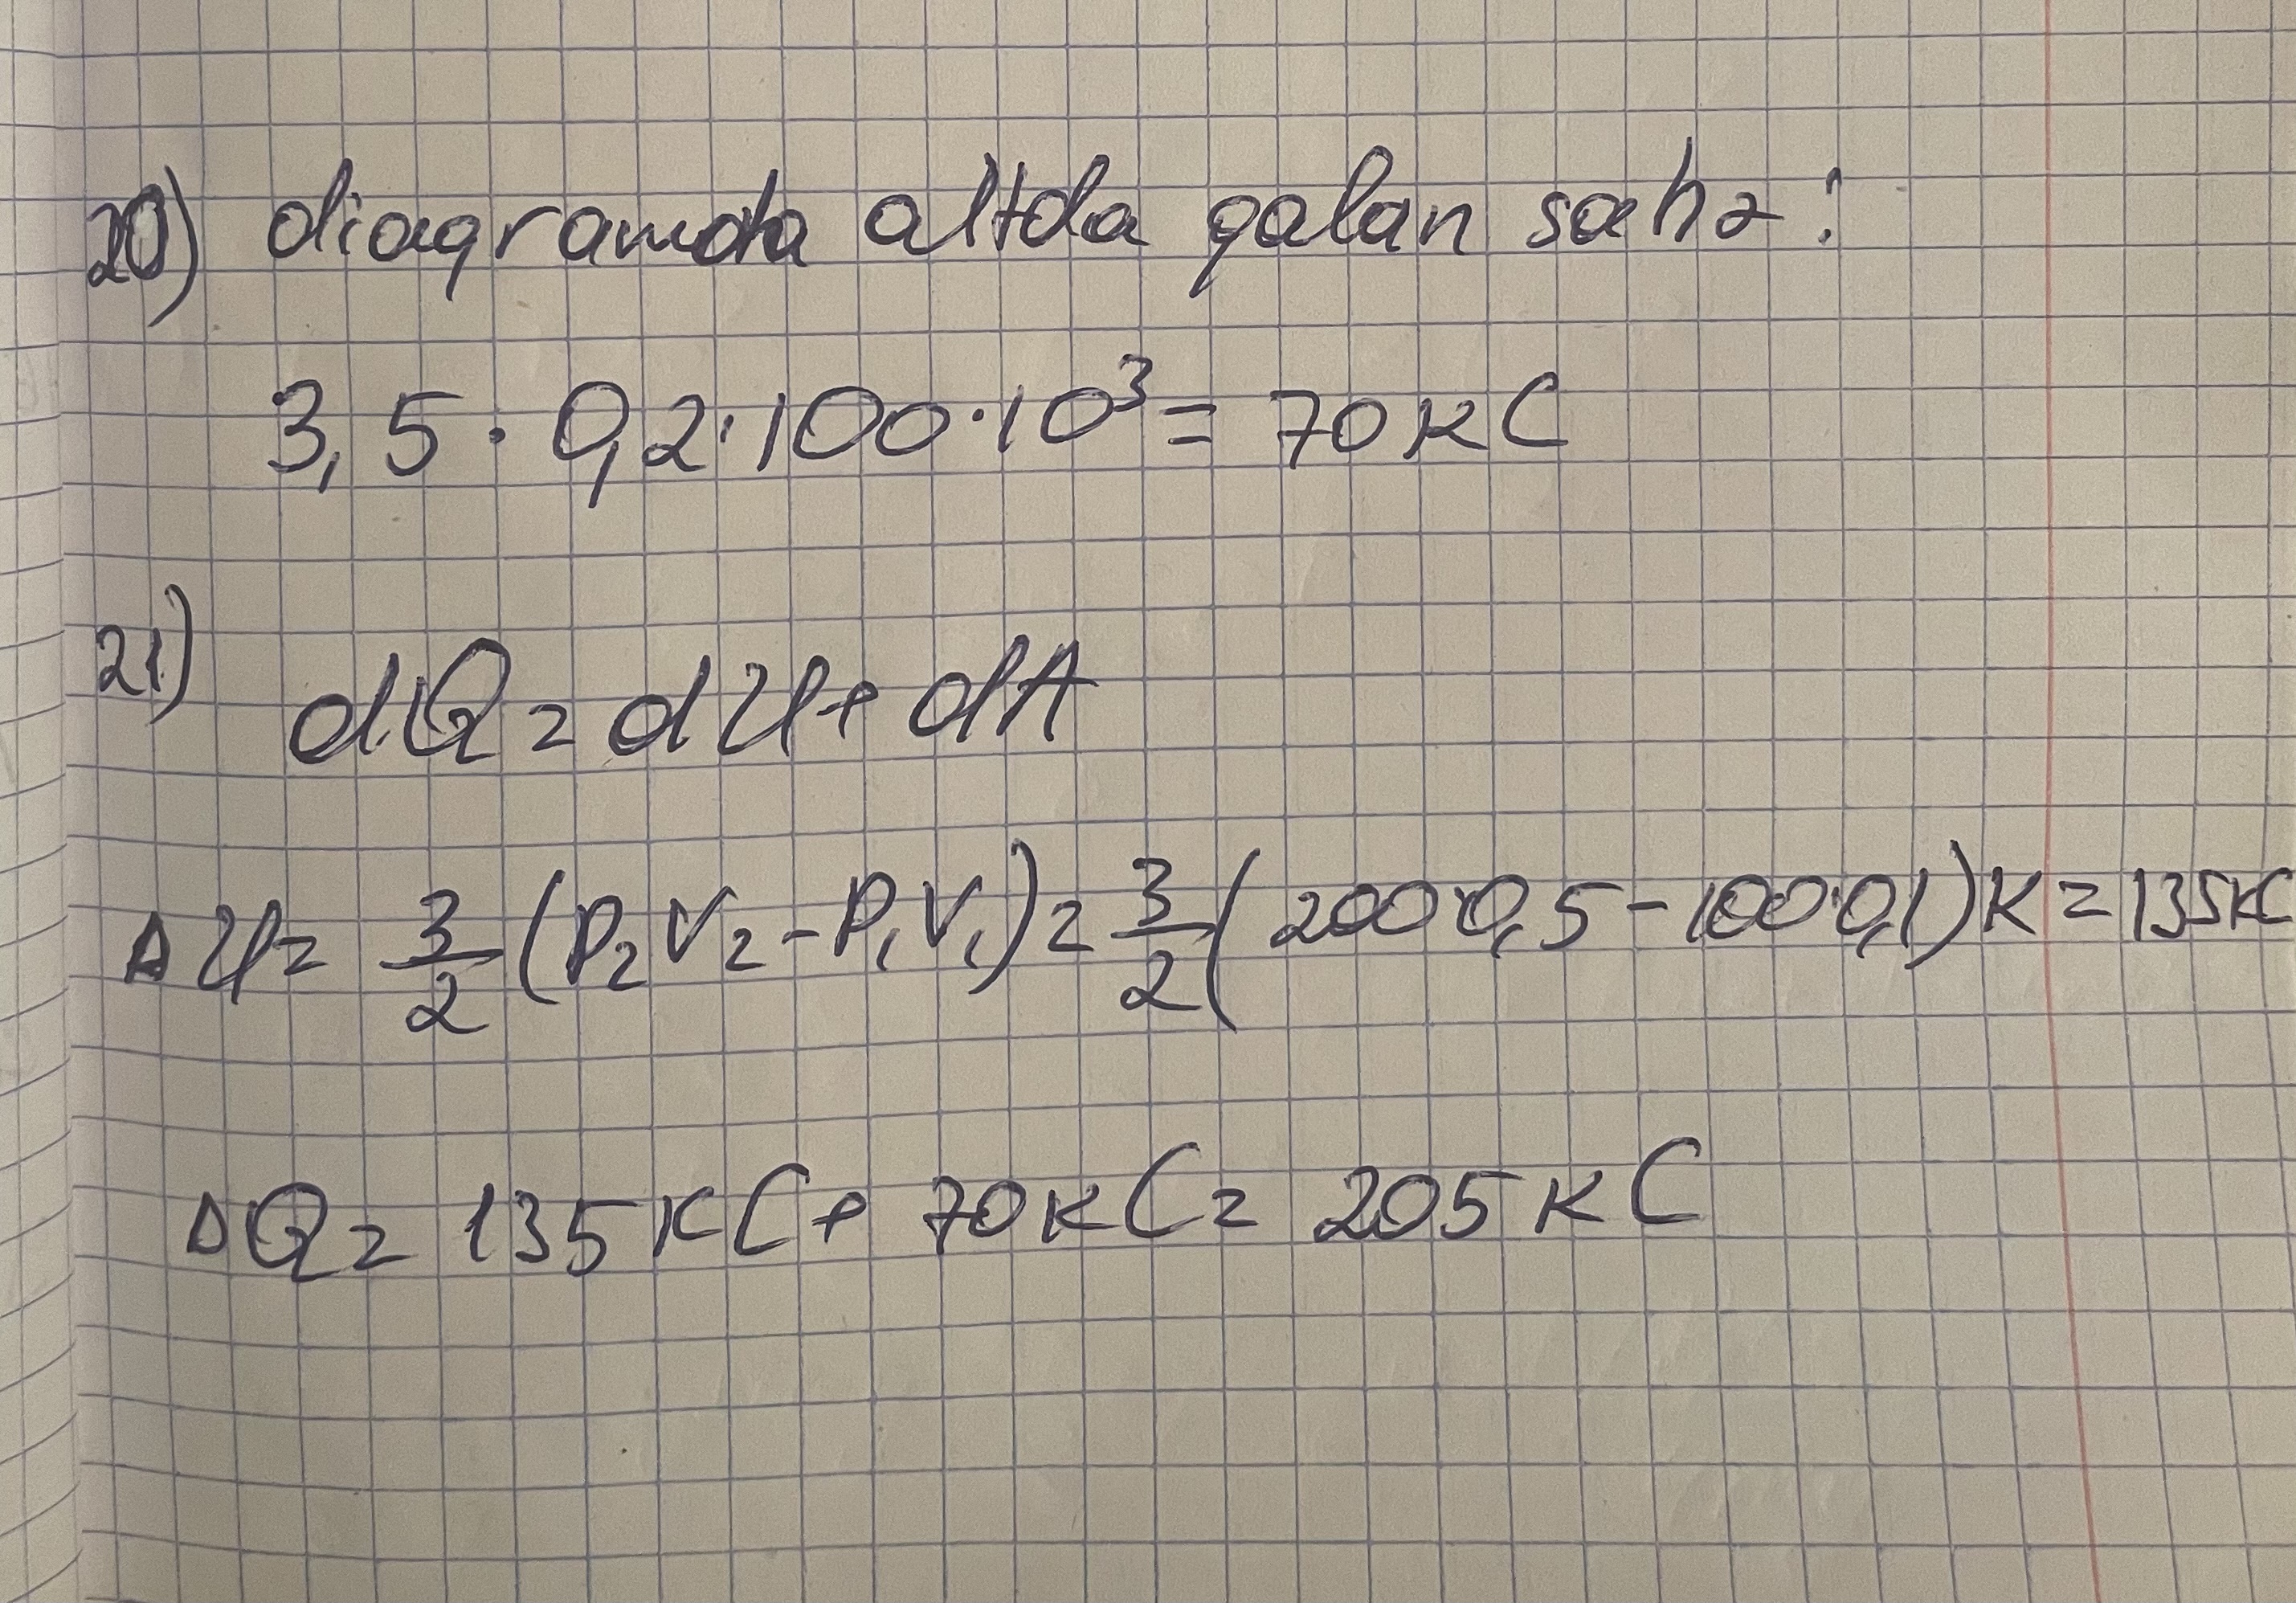 20) diagramda altda qalan sahə:
3,5 · 0,2 · 100 · 10³ = 70 kC
21) dQ = dU + dA
ΔU = 3/2 (P₂V₂ - P₁V₁) = 3/2 (200·0,5 - 100·0,1) K = 135 kC
ΔQ = 135 kC + 70 kC = 205 kC